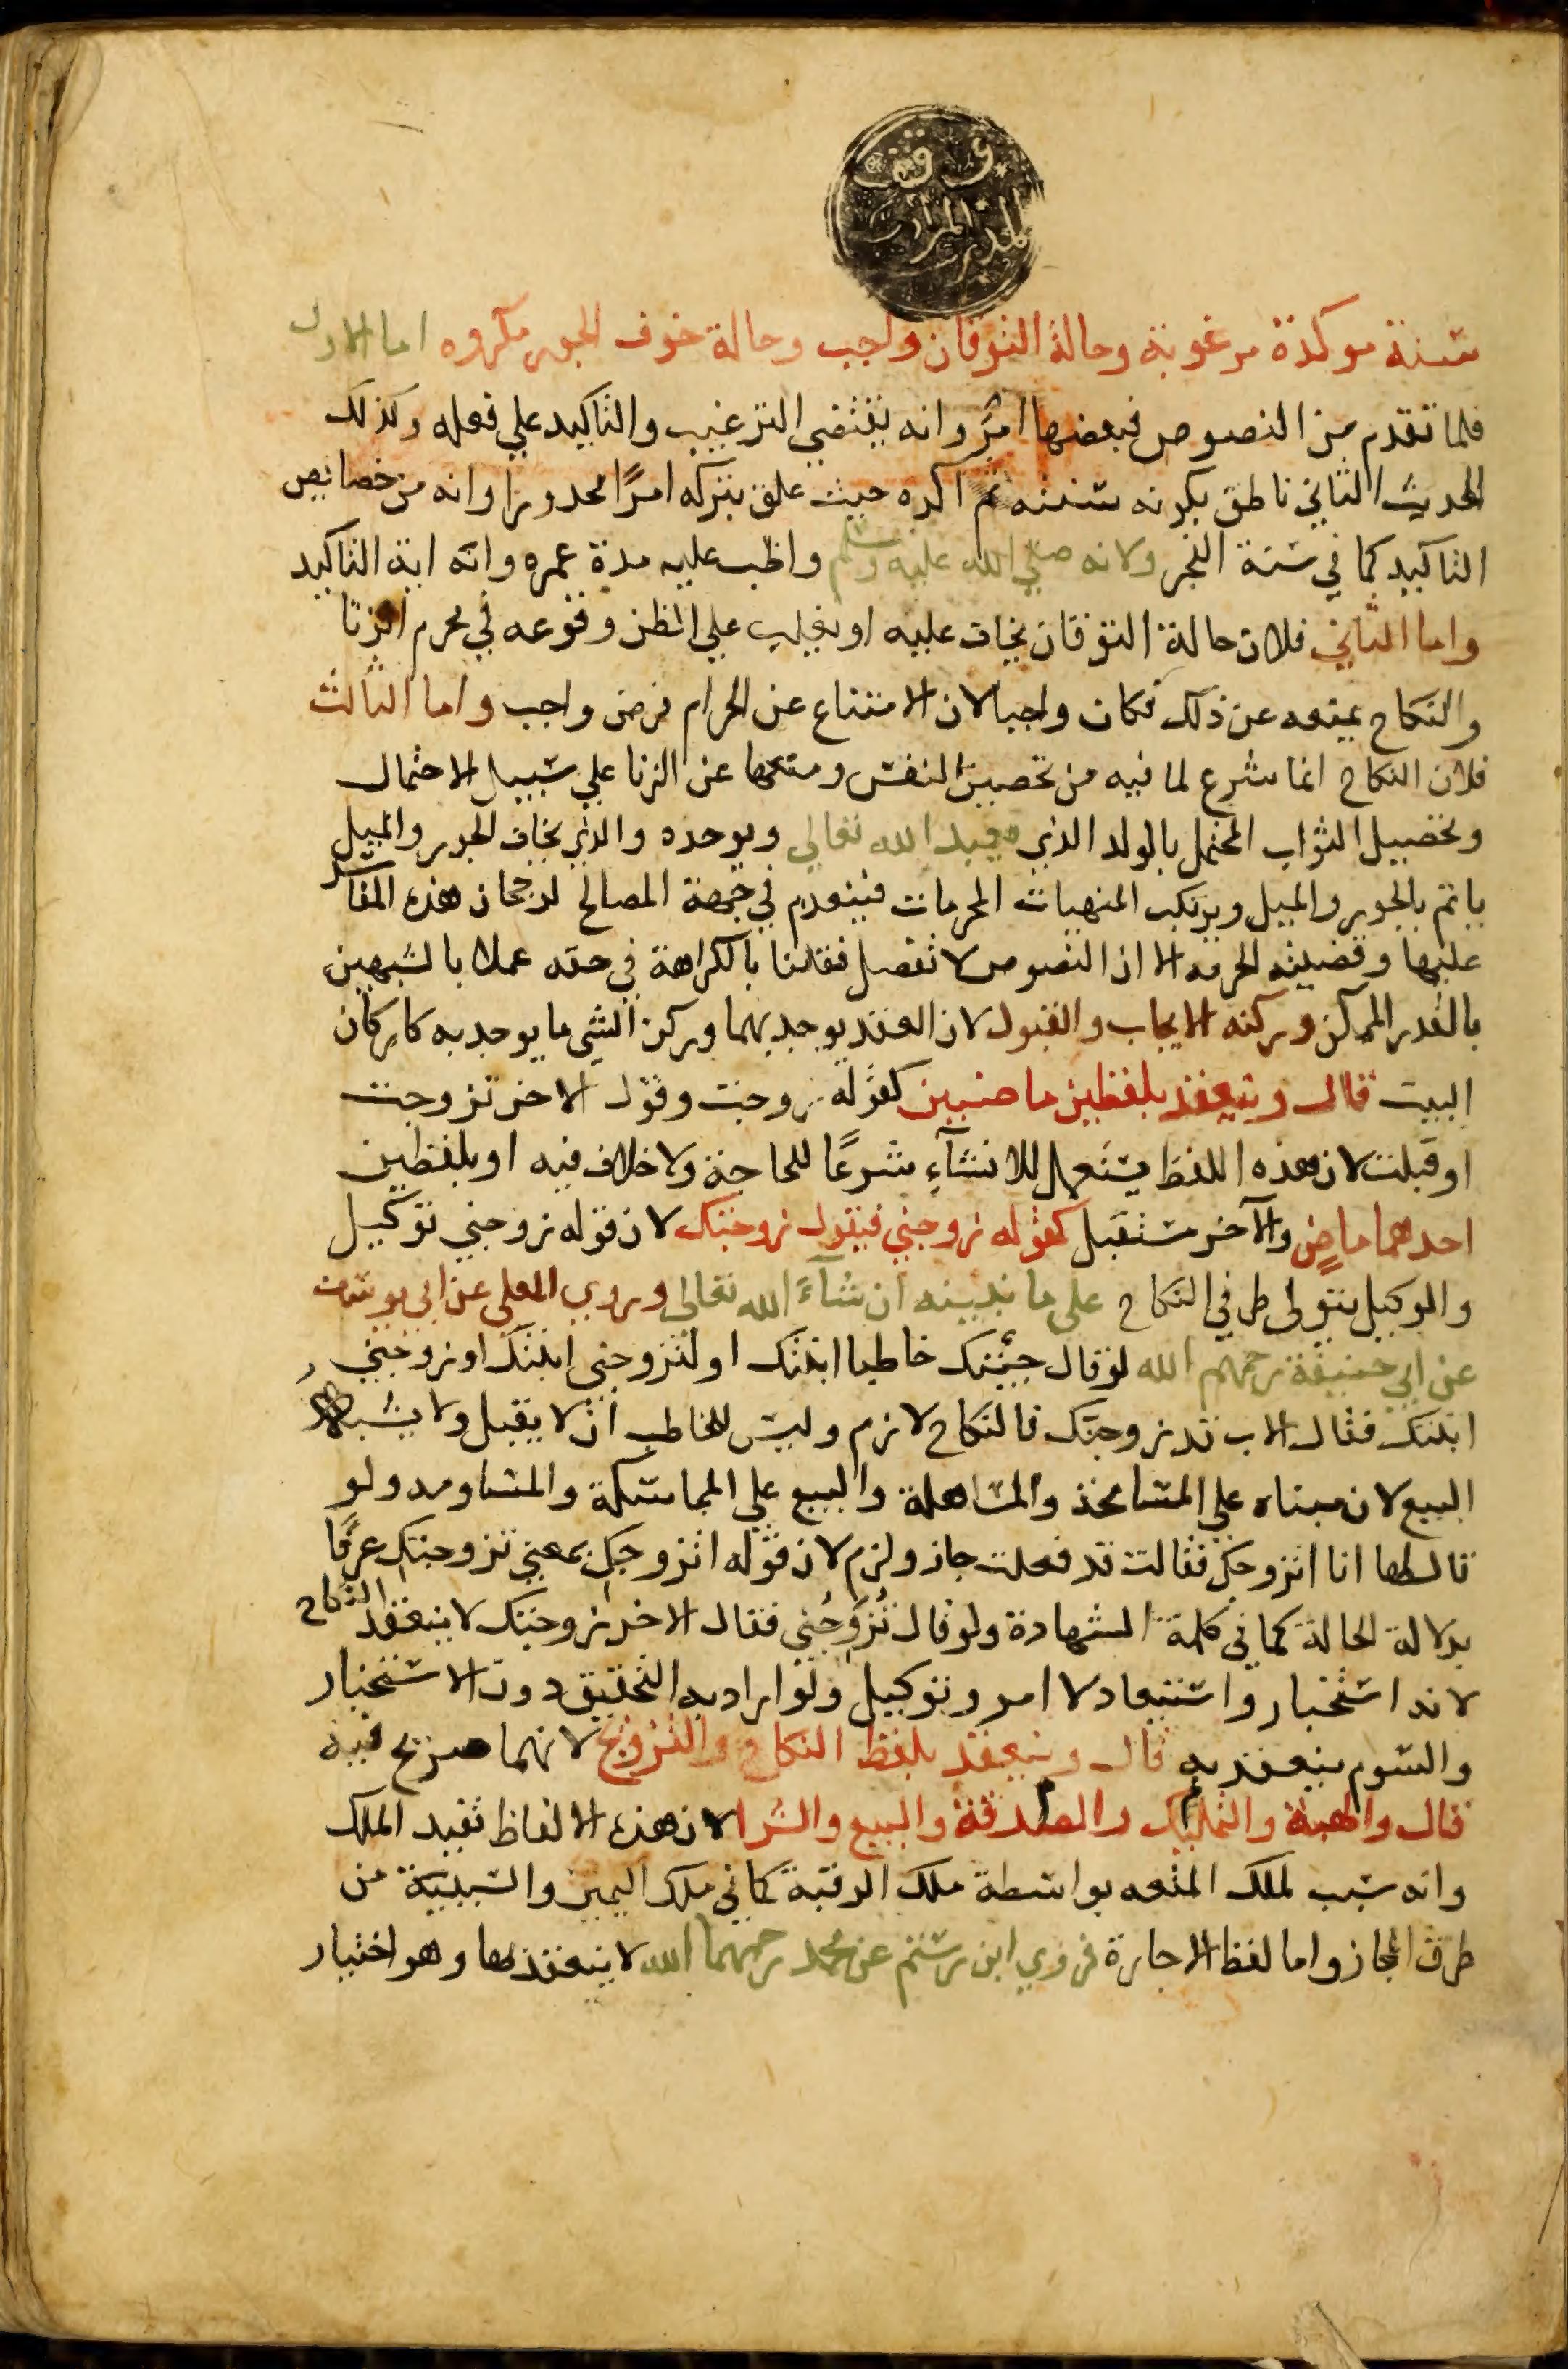 وقف
المدرسة المرادية
سنة موكدة مرغوبة وحالة التوقان واجب وحالة خوف الجور مكروه اما الاول
فلما تقدم من النصوص فبعضها امر وانه يقتضي الترغيب والتاكيد علي فعله وكذلك
الحديث الثاني ناطق بكونه سنته ثم اكده حيث علق بتركه امرًا محدورا وانه من خصايص
التاكيد كما في سنة الفجر ولانه صلي الله عليه وسلم واظب عليه مدة عمره وانه اية التاكيد
واما الثاني فلان حالة التوقان يخاف عليه او يغلب علي الظن وقوعه في محرم الزنا
والنكاح يمنعه عن ذلك فكان واجبا لان الامتناع عن الحرام فرض واجب واما الثالث
فلان النكاح انما شرع لما فيه من تحصين النفس ومنعها عن الزنا علي سبيل الاحتمال
وتحصيل الثواب المحتمل بالولد الذي يعبد الله تعالي ويوحده والذي يخاف الجور والميل
ياثم بالجور والميل ويرتكب المنهيات المحرمات فينعدم في جهة المصالح لرجحان هذه المفاسد
عليها وقضيته الحرمه الا ان النصوص لا تفصل فقلنا بالكراهة في حقه عملا بالشبهين
بالقدر الممكن وركنه الايجاب والقبول لان العقد يوجد بهما وركن الشي ما يوجد به كاركان
البيت قال وينعقد بلفظين ماضيين كقوله زوجت وقول الاخر تزوجت
او قبلت لان هذه اللفظ يستعمل للانشآء شرعًا للحاجة ولا خلاف فيه او بلفظين
احدهما ماضٍ والآخر مستقبل كقوله زوجني فيقول زوجتك لان قوله زوجني توكيل
والوكيل يتولى طرفي النكاح على ما نبينه ان شآء الله تعالى وروي المعلى عن ابي يوسف
عن ابي حنيفة رحمهم الله لو قال جيتك خاطبا ابنتك او لتزوجني ابنتك او زوجني
ابنتك فقال الاب قد زوجتك فالنكاح لازم وليس للخاطب ان لا يقبل ولا يشبه
البيع لان مبناه علي المسامحة والمساهلة والبيع علي المماسكة والمساومه ولو
قال لها انا اتزوجك فقالت قد فعلت جاز ولزم لان قوله اتزوجك بمعني تزوجتك عرفًا
بدلالة الحالة كما في كلمة الشهادة ولو قال تُزَوِّجُني فقال الاخر زوجتك لا ينعقد النكاح
لانه استخبار واستيعاد لا امر وتوكيل ولو اراد به التحقيق دون الاستخبار
والسوم ينعقد به قال وينعقد بلفظ النكاح والتزويج لانهما صريح فيه
قال والهبة والتمليك والصدقة والبيع والشرا لان هذه الالفاظ تفيد الملك
وانه سبب لملك المتعه بواسطة ملك الرقبة كما في ملك اليمين والسببية من
طرق المجاز واما لفظ الاجارة فروي ابن رستم عن محمد رحمهما الله لا ينعقد بها وهو اختيار